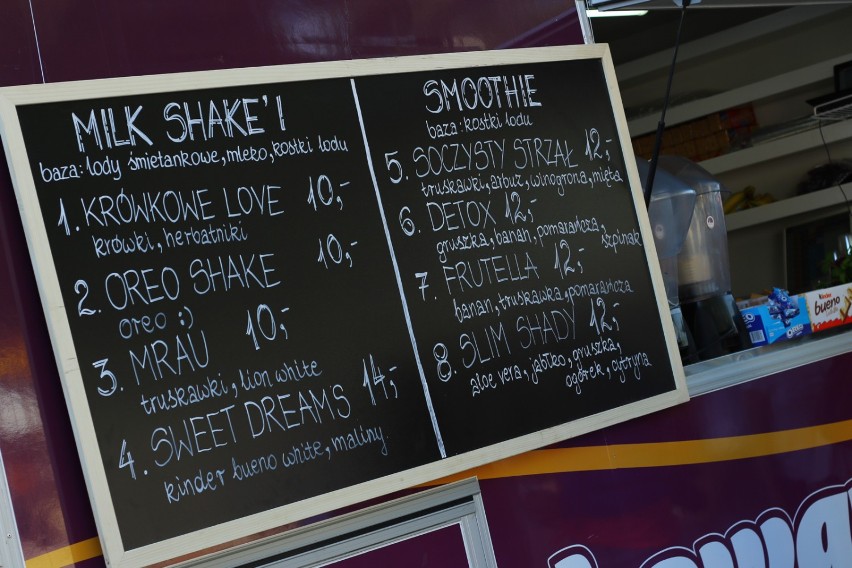 MILK SHAKE'I
baza: lody śmietankowe, mleko, kostki lodu
1. KRÓWKOWE LOVE 10,-
krówki, herbatniki
2. OREO SHAKE 10,-
oreo :)
3. MRAU 10,-
truskawki, lion white
4. SWEET DREAMS 14,-
kinder bueno white, maliny
SMOOTHIE
baza: kostki lodu
5. SOCZYSTY STRZAŁ 12,-
truskawki, arbuz, winogrona, mięta
6. DETOX 12,-
gruszka, banan, pomarańcza, szpinak
7. FRUTELLA 12,-
banan, truskawka, pomarańcza
8. SLIM SHADY 12,-
aloe vera, jabłko, gruszka,
ogórek, cytryna
OREO
Kinder
bueno